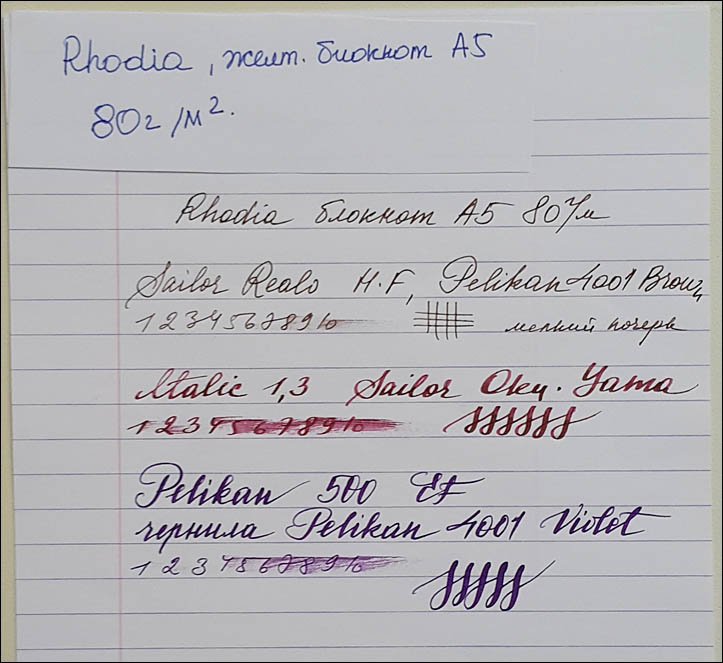 Rhodia, желт. блокнот А5
80г/м².
Rhodia блокнот А5 80г/м
Sailor Realo H.F, Pelikan 4001 Brown
1 2 3 4 5 6 7 8 9 10
мелкий почерк
Italic 1,3 Sailor Oku. Yama
1 2 3 4 5 6 7 8 9 10
Pelikan 500 EF
чернила Pelikan 4001 Violet
1 2 3 4 5 6 7 8 9 10